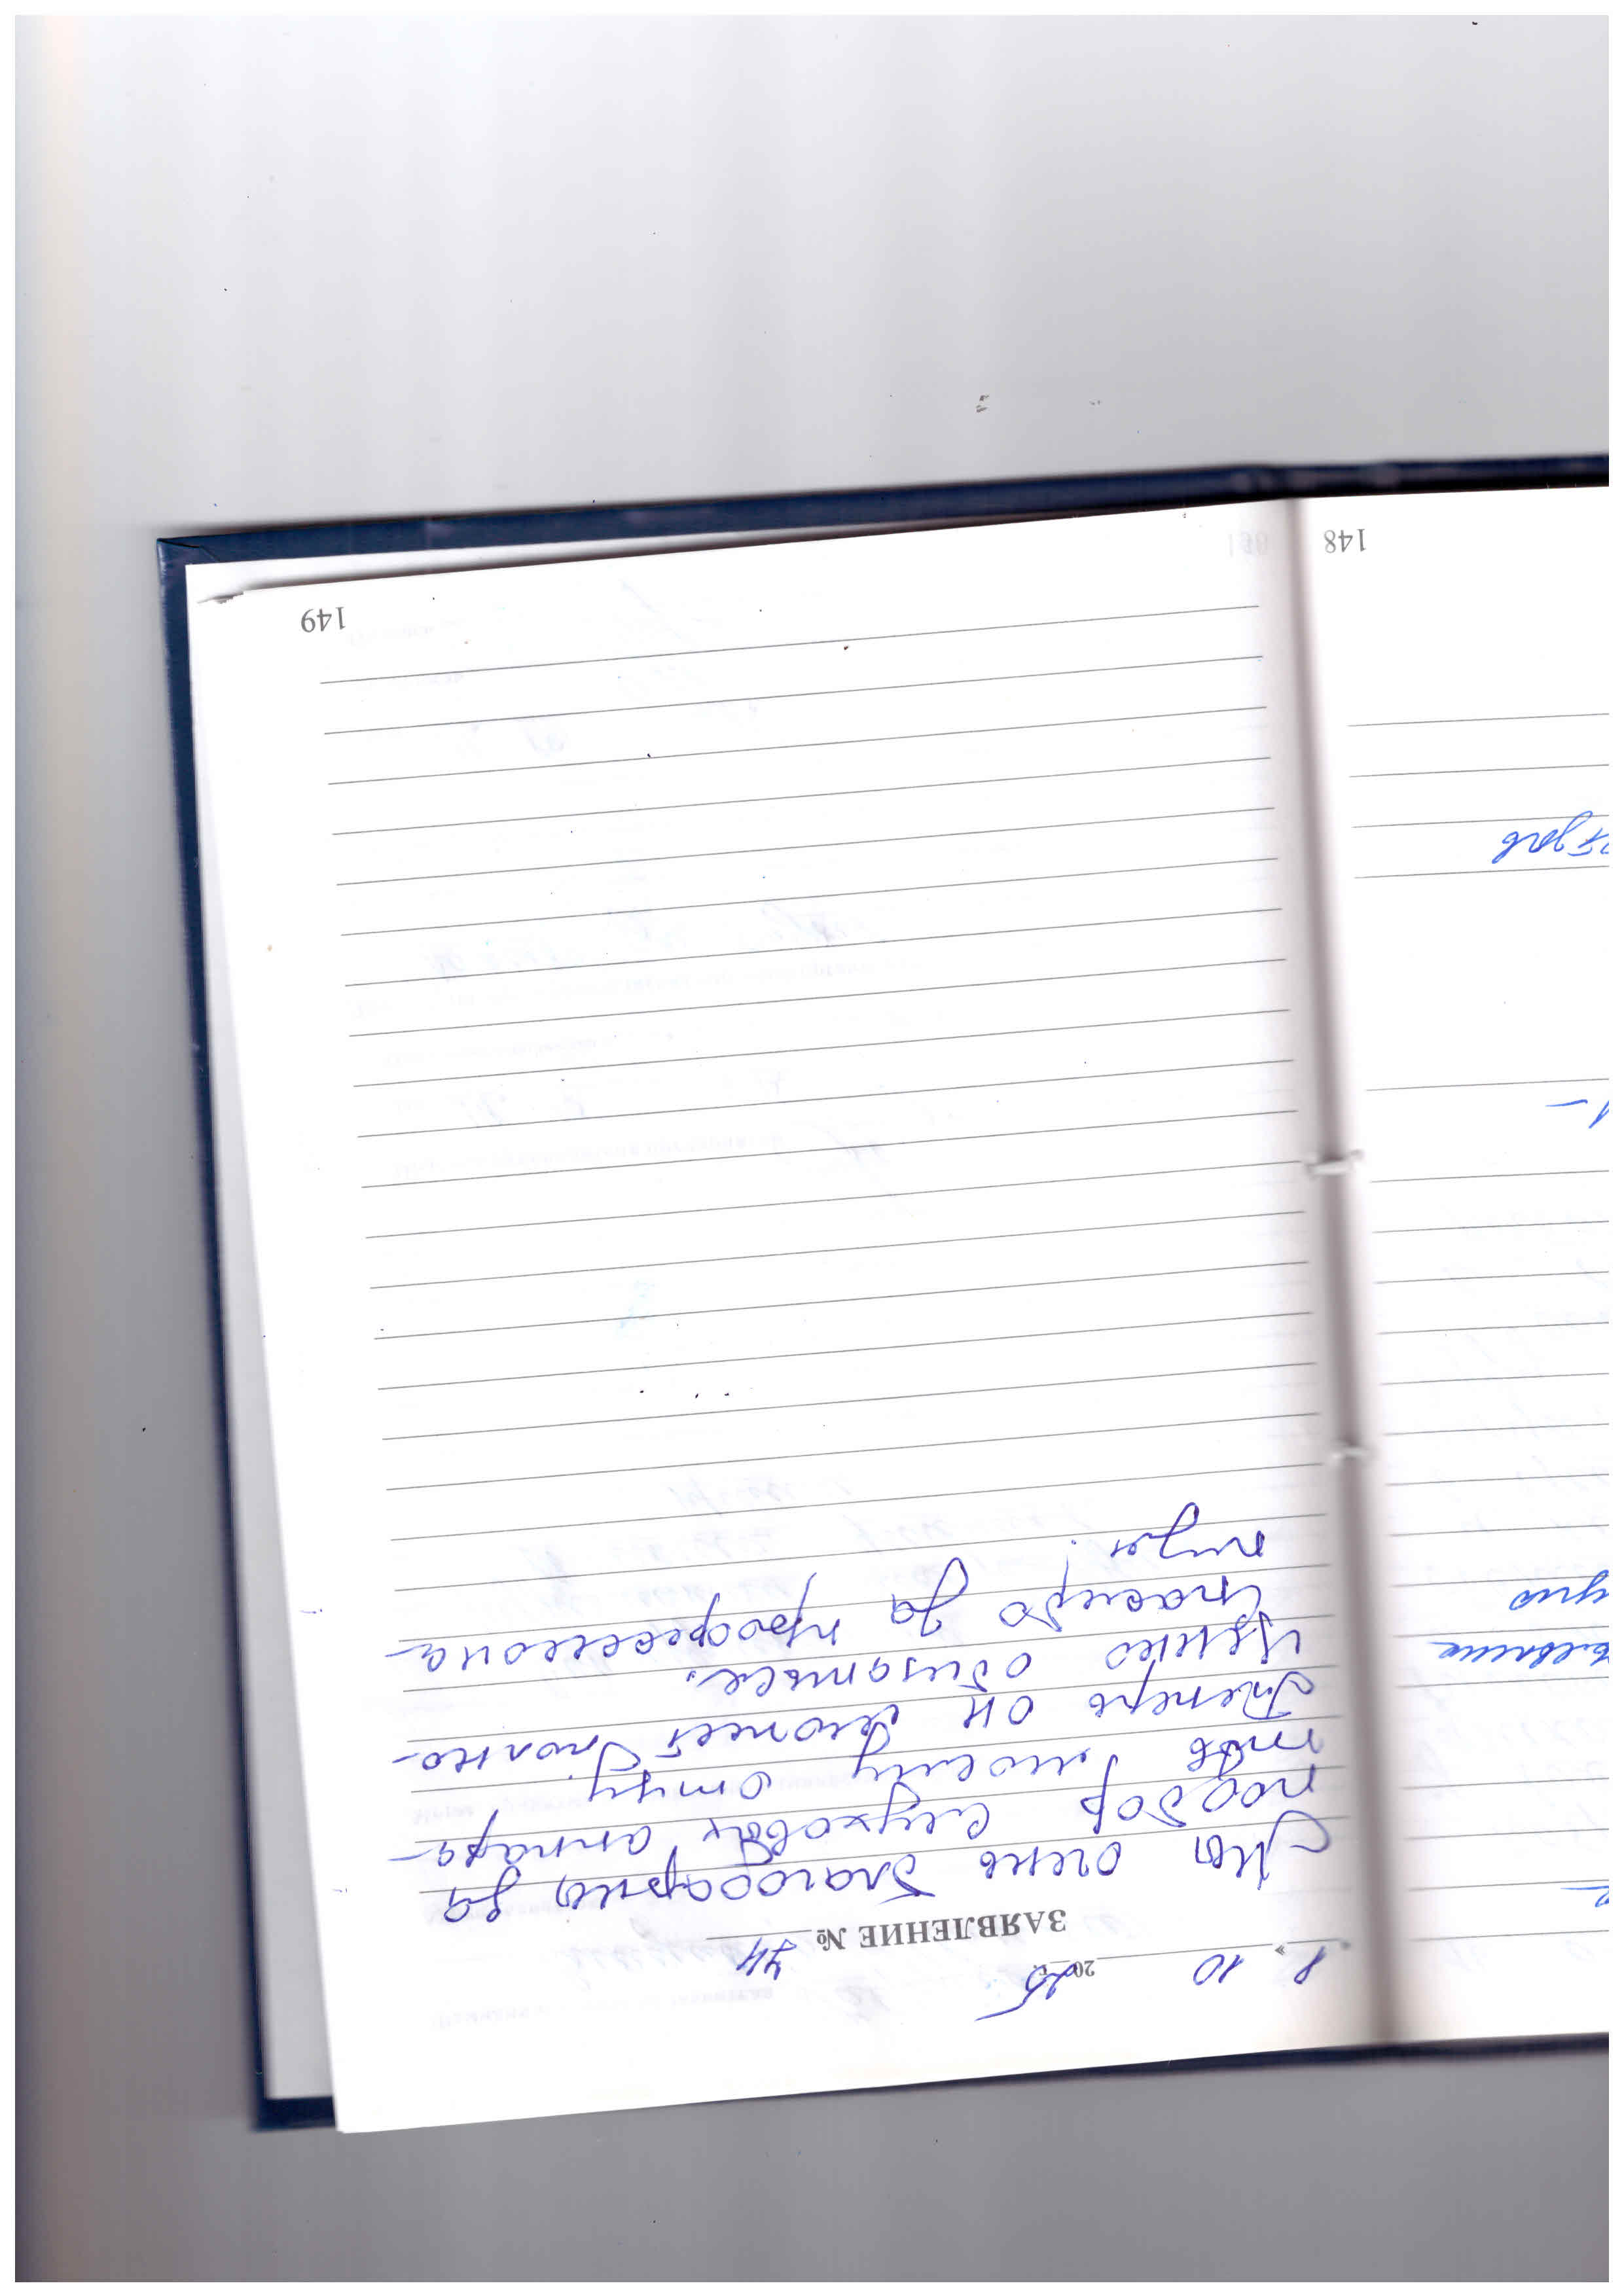 8 » 10 2025 г.
ЗАЯВЛЕНИЕ № 74
Мы очень благодарны за
подбор слуховых аппара-
тов моему отцу.
Теперь он может полно-
ценно общаться.
Спасибо за профессиона-
лизм!
149
148